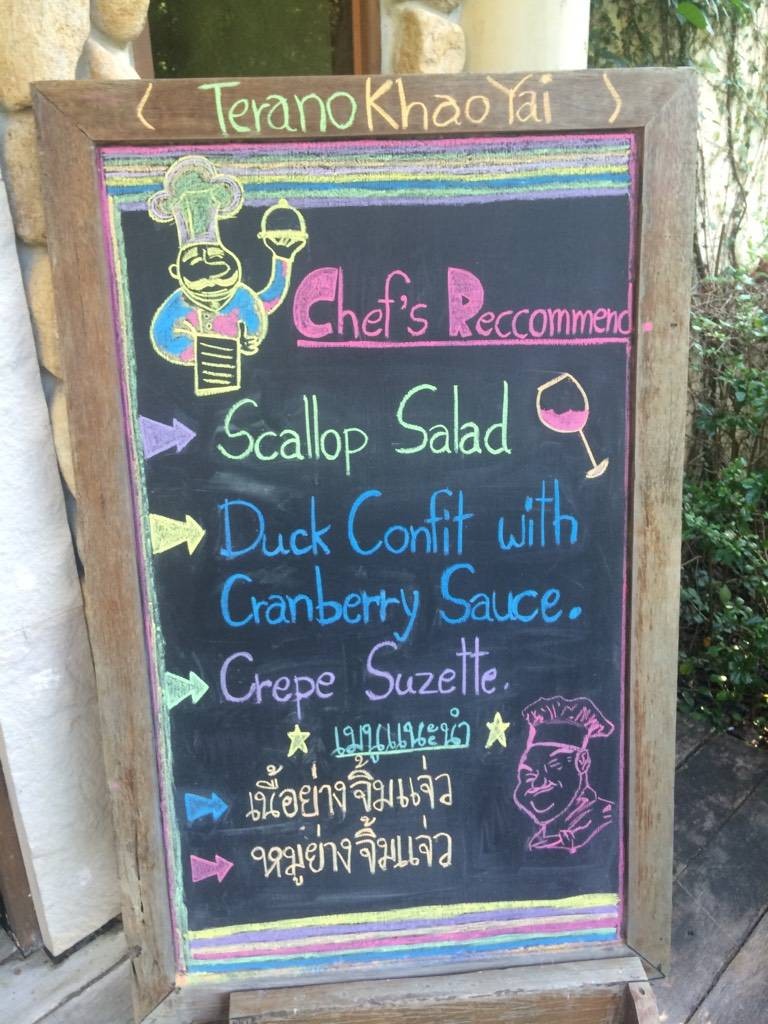 ( Terano Khao Yai )
Chef's Reccommend
Scallop Salad
Duck Confit with
Cranberry Sauce.
Crepe Suzette.
เมนูแนะนำ
เนื้อย่างจิ้มแจ่ว
หมูย่างจิ้มแจ่ว